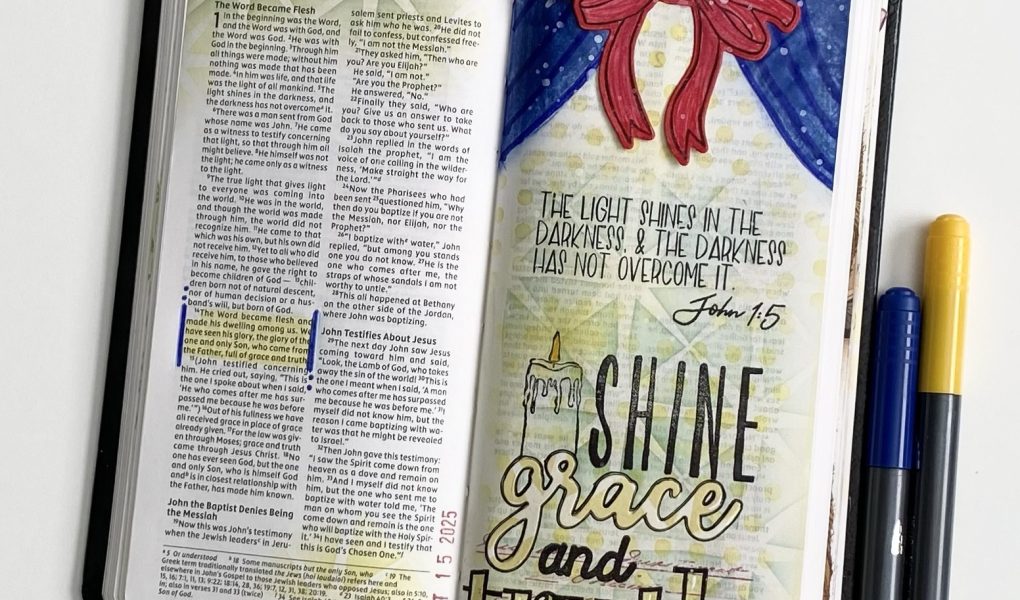 The Word Became Flesh
1 In the beginning was the Word,
and the Word was with God, and
the Word was God. ²He was with
God in the beginning. ³Through him
all things were made; without him
nothing was made that has been
made. ⁴In him was life, and that life
was the light of all mankind. ⁵The
light shines in the darkness, and
the darkness has not overcomeᵃ it.
⁶There was a man sent from God
whose name was John. ⁷He came
as a witness to testify concerning
that light, so that through him all
might believe. ⁸He himself was not
the light; he came only as a witness
to the light.
⁹The true light that gives light
to everyone was coming into
the world. ¹⁰He was in the world,
and though the world was made
through him, the world did not
recognize him. ¹¹He came to that
which was his own, but his own did
not receive him. ¹²Yet to all who did
receive him, to those who believed
in his name, he gave the right to
become children of God— ¹³chil-
dren born not of natural descent,
nor of human decision or a hus-
band's will, but born of God.
¹⁴The Word became flesh and
made his dwelling among us. We
have seen his glory, the glory of the
one and only Son, who came from
the Father, full of grace and truth.
¹⁵(John testified concerning
him. He cried out, saying, "This is
the one I spoke about when I said,
'He who comes after me has sur-
passed me because he was before
me.'") ¹⁶Out of his fullness we have
all received grace in place of grace
already given. ¹⁷For the law was giv-
en through Moses; grace and truth
came through Jesus Christ. ¹⁸No
one has ever seen God, but the one
and only Son, who is himself God
andᵍ is in closest relationship with
the Father, has made him known.
John the Baptist Denies Being
the Messiah
¹⁹Now this was John's testimony
when the Jewish leadersᶜ in Jeru-
salem sent priests and Levites to
ask him who he was. ²⁰He did not
fail to confess, but confessed free-
ly, "I am not the Messiah."
²¹They asked him, "Then who are
you? Are you Elijah?"
He said, "I am not."
"Are you the Prophet?"
He answered, "No."
²²Finally they said, "Who are
you? Give us an answer to take
back to those who sent us. What
do you say about yourself?"
²³John replied in the words of
Isaiah the prophet, "I am the
voice of one calling in the wilder-
ness, 'Make straight the way for
the Lord.'"ᵈ
²⁴Now the Pharisees who had
been sent ²⁵questioned him, "Why
then do you baptize if you are not
the Messiah, nor Elijah, nor the
Prophet?"
²⁶"I baptize withᵉ water," John
replied, "but among you stands
one you do not know. ²⁷He is the
one who comes after me, the
straps of whose sandals I am not
worthy to untie."
²⁸This all happened at Bethany
on the other side of the Jordan,
where John was baptizing.
John Testifies About Jesus
²⁹The next day John saw Jesus
coming toward him and said,
"Look, the Lamb of God, who takes
away the sin of the world! ³⁰This is
the one I meant when I said, 'A man
who comes after me has surpassed
me because he was before me.' ³¹I
myself did not know him, but the
reason I came baptizing with wa-
ter was that he might be revealed
to Israel."
³²Then John gave this testimony:
"I saw the Spirit come down from
heaven as a dove and remain on
him. ³³And I myself did not know
him, but the one who sent me to
baptize with water told me, 'The
man on whom you see the Spirit
come down and remain is the one
who will baptize with the Holy Spir-
it.' ³⁴I have seen and I testify that
this is God's Chosen One."ᶠ
ᵃ 5 Or understood ᵇ 18 Some manuscripts but the only Son, who ᶜ 19 The
Greek term traditionally translated the Jews (hoi Ioudaioi) refers here and
elsewhere in John's Gospel to those Jewish leaders who opposed Jesus; also in 5:10,
15, 16; 7:1, 11, 13; 9:22; 18:14, 28, 36; 19:7, 12, 31, 38; 20:19.
in; also in verses 31 and 33 (twice)
Son of God.
15 2025
THE LIGHT SHINES IN THE
DARKNESS, & THE DARKNESS
HAS NOT OVERCOME IT.
John 1:5
SHINE
grace
and